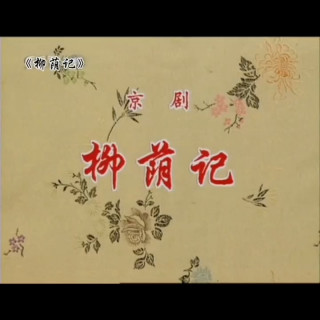 《柳荫记》
京剧
柳荫记